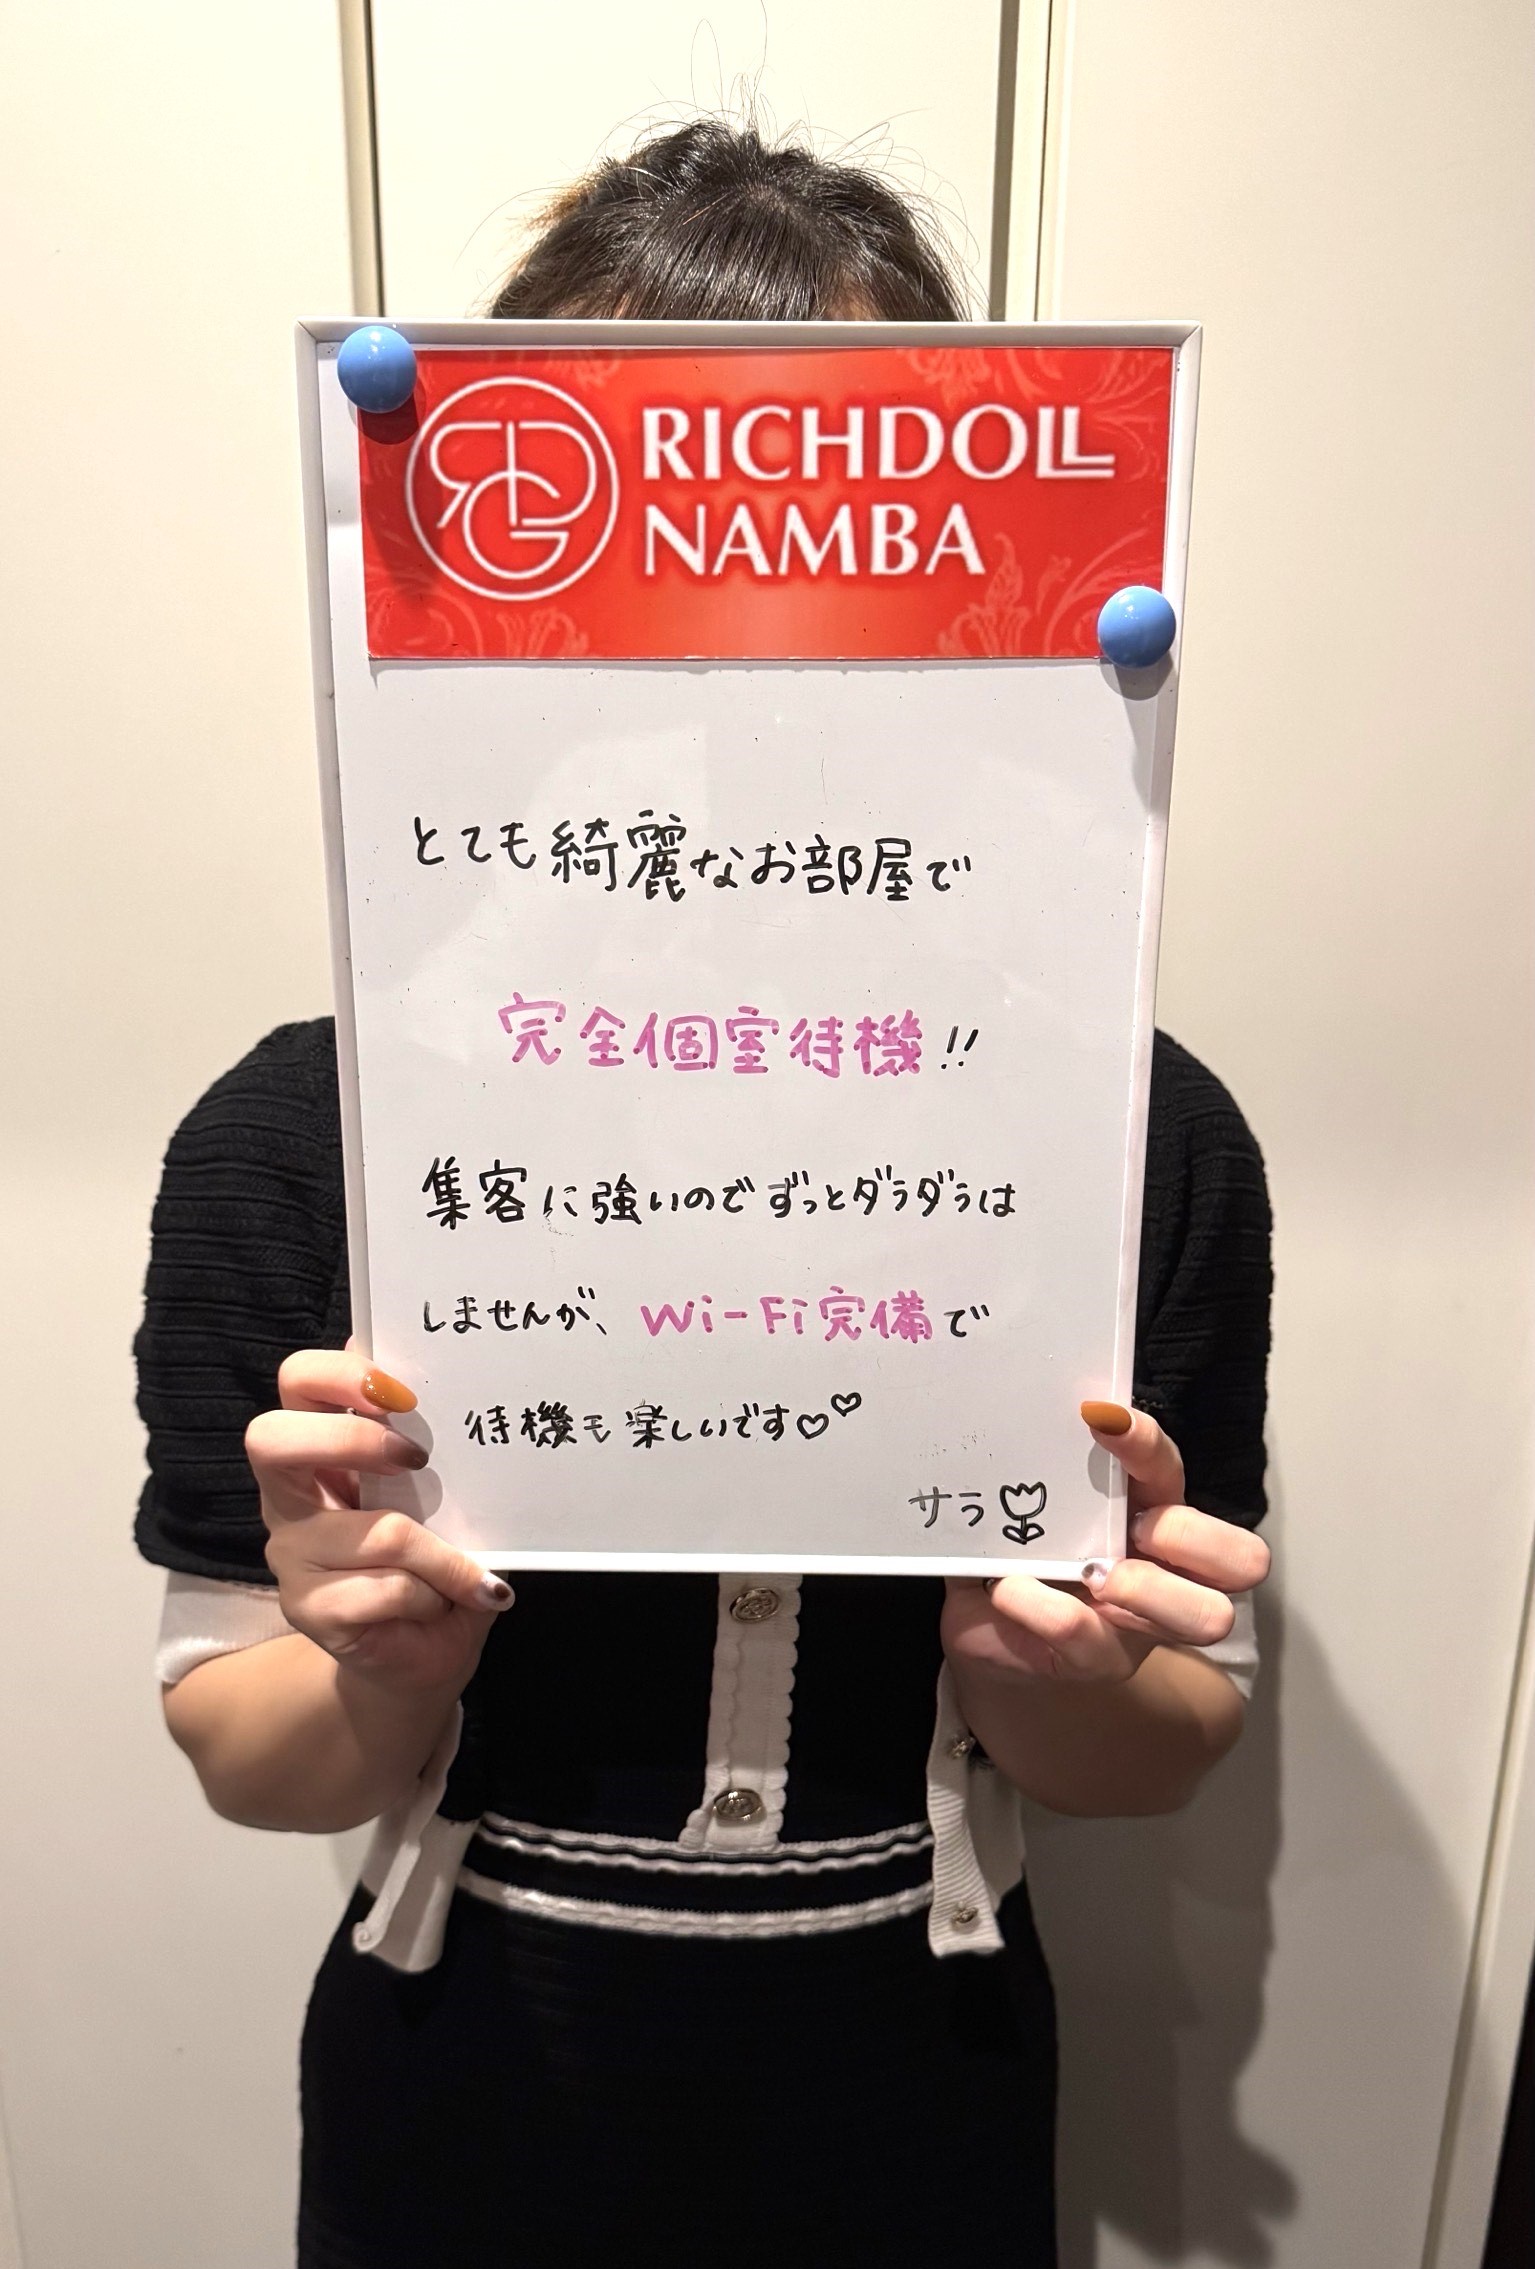 RICHDOLL
NAMBA
とても綺麗なお部屋で
完全個室待機!!
集客に強いのでずっとダラダラは
しませんが、Wi-Fi完備で
待機も楽しいです♡♡
サラ